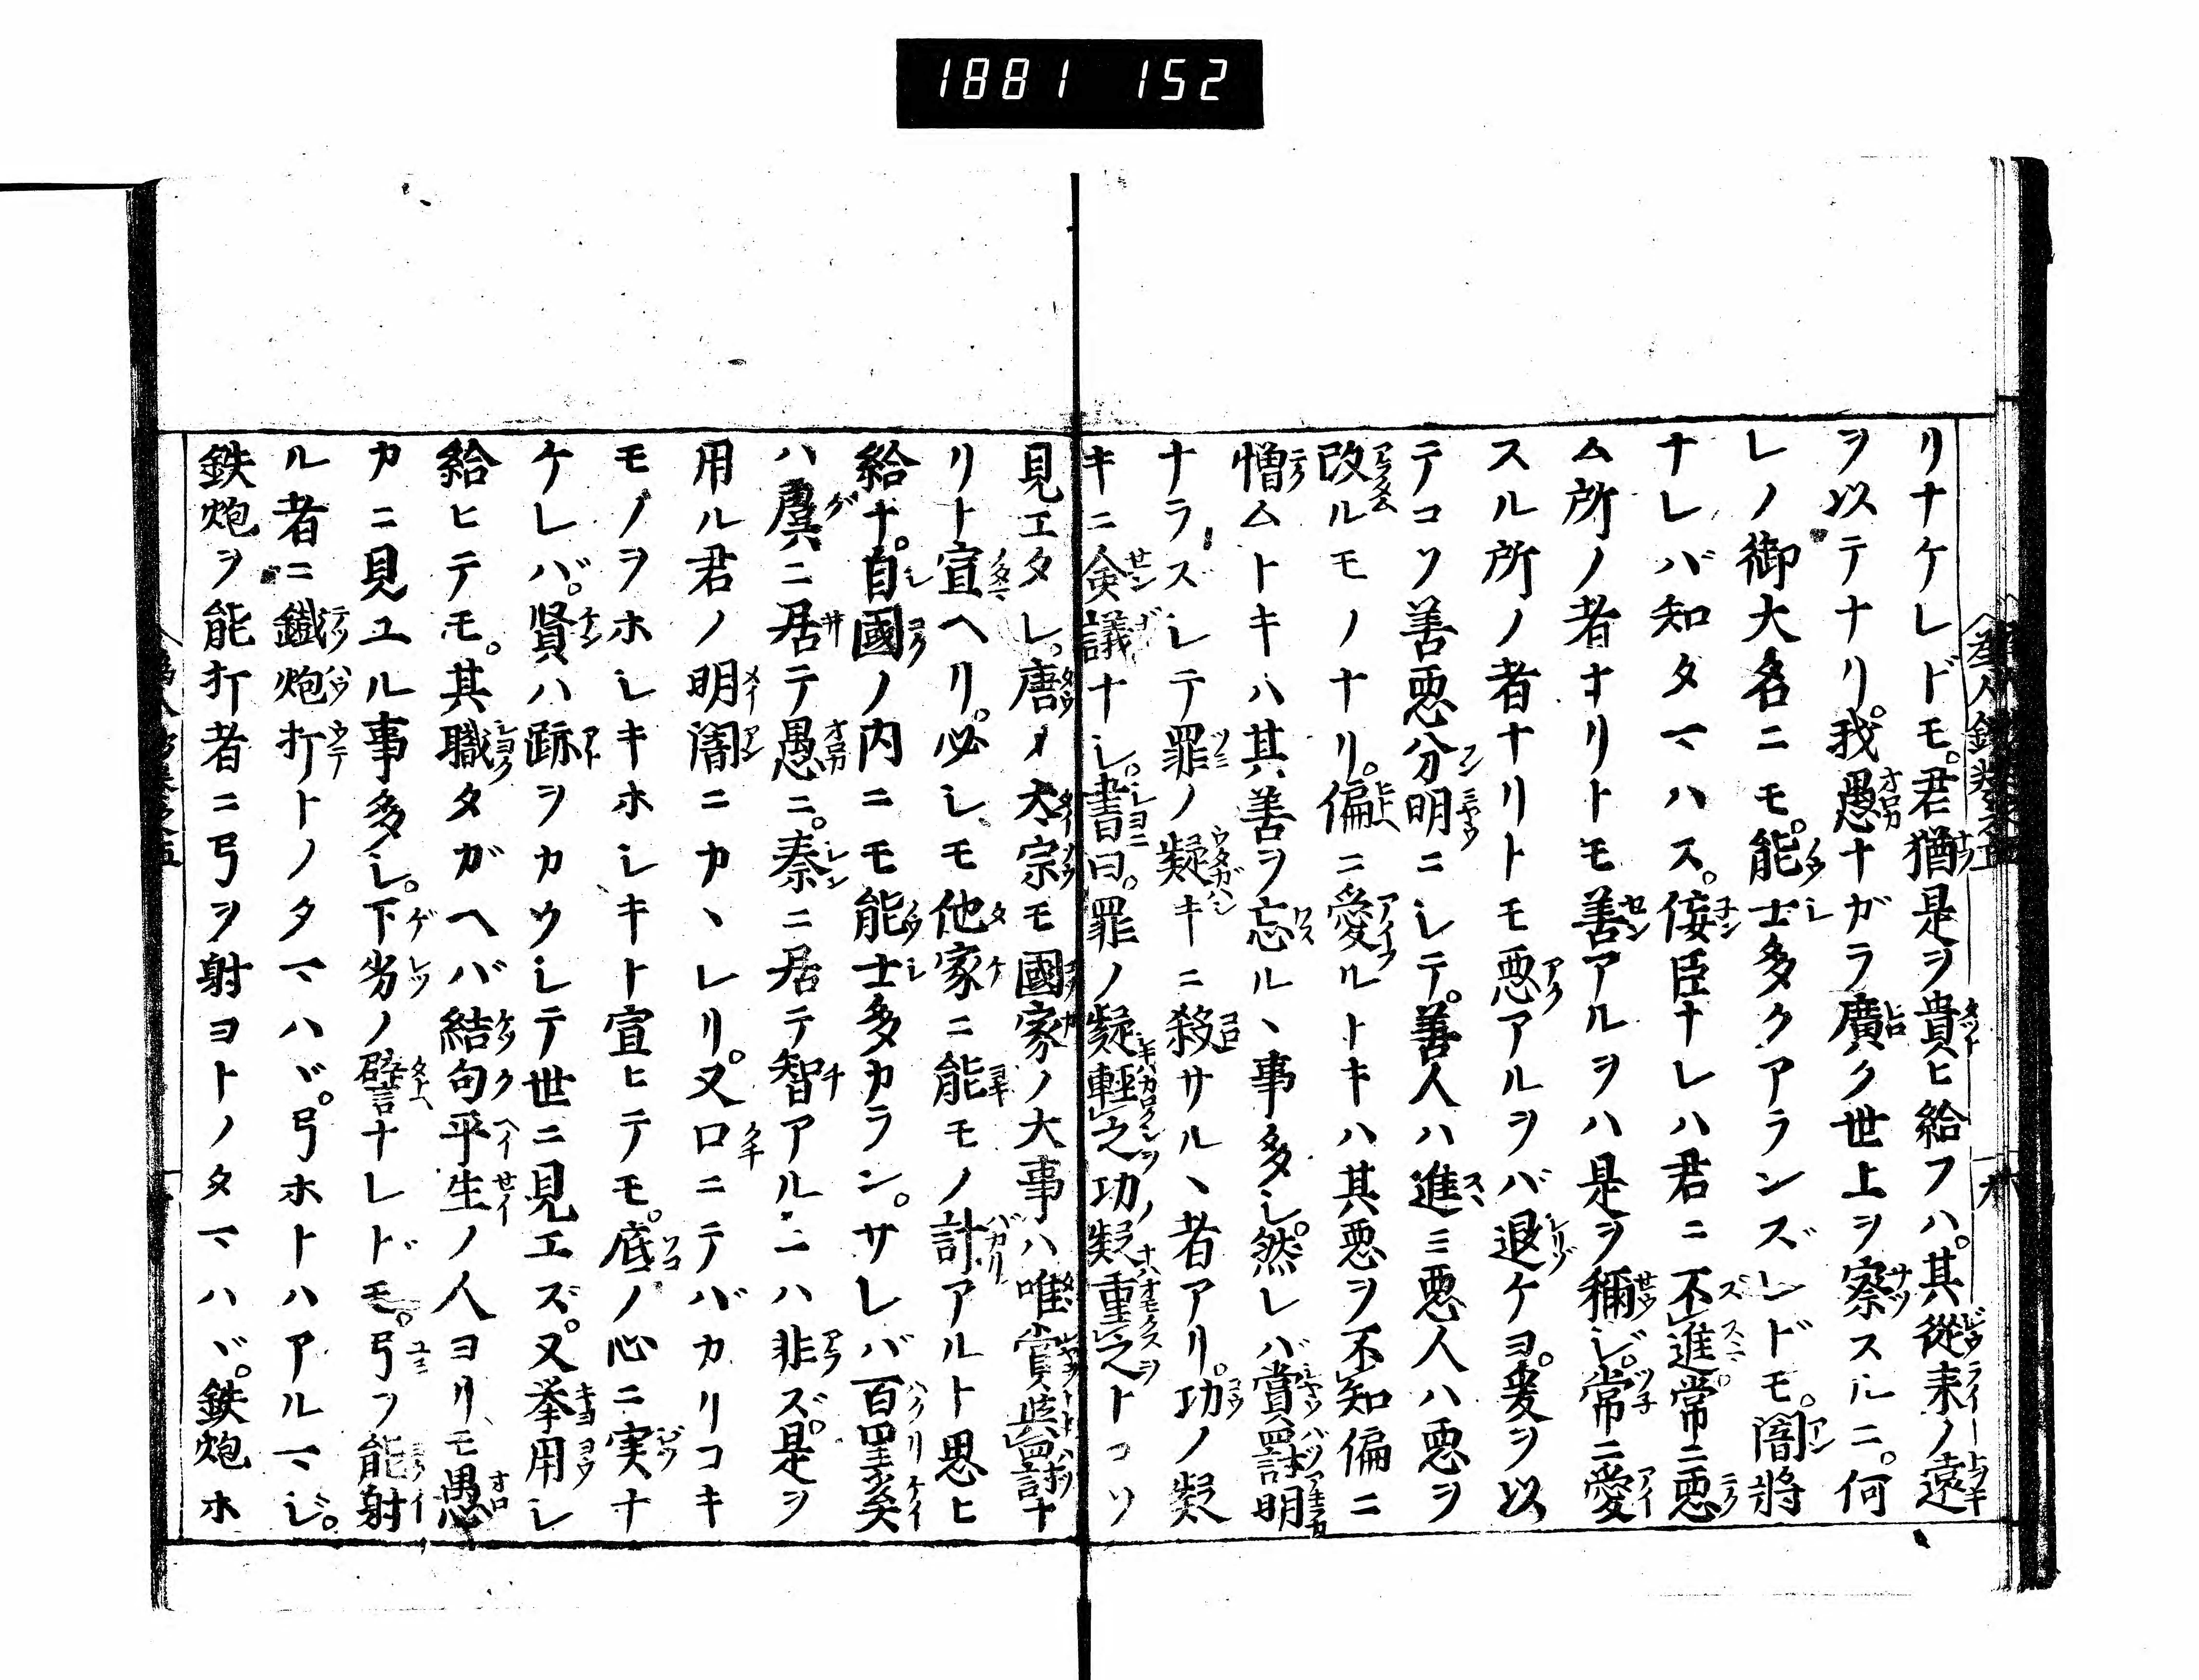 1881 152
リナケレドモ。君猶是ヲ貴ヒ給フハ。其從来ノ遠
ヲ以テナリ。我愚ナガラ廣ク世上ヲ察スルニ。何
レノ御大名ニモ。能士多クアランズレドモ。闇將
ナレバ知タマハス。侫臣ナレハ君ニ不進。常ニ悪
ム所ノ者ナリトモ善アルヲハ是ヲ稱シ。常ニ愛
スル所ノ者ナリトモ悪アルヲバ退ケヨ。爰ヲ以
テコソ善悪分明ニシテ。善人ハ進ミ悪人ハ悪ヲ
改ルモノナリ。偏ニ愛ルトキハ其悪ヲ不知偏ニ
憎ムトキハ其善ヲ忘ル丶事多シ。然レバ賞罰明
ナラズシテ罪ノ疑キニ殺サル丶者アリ。功ノ疑
キニ僉議ナシ。書曰。罪ノ疑輕之功疑重之トコソ
見エタレ。唐ノ太宗モ國家ノ大事ハ唯賞與罰ナ
リト宣ヘリ。必シモ他家ニ能モノ計アルト思ヒ
給ナ。自國ノ内ニモ能士多カラン。サレバ百里奚
ハ虞ニ居テ愚ニ。秦ニ居テ智アルニハ非ズ。是ヲ
用ル君ノ明闇ニカ丶レリ。又口ニテバカリコキ
モノヲホシキホシキト宣ヒテモ。底ノ心ニ実ナ
ケレバ。賢ハ跡ヲカウシテ世ニ見エズ。又挙用シ
給ヒテモ。其職タガヘバ結句平生ノ人ヨリモ愚
カニ見ユル事多シ。下劣ノ譬ナレドモ。弓ヲ能射
ル者ニ鐵炮打トノタマハヾ。弓ホトハアルマジ。
鉄炮ヲ能打者ニ弓ヲ射ヨトノタマハヾ。鉄炮ホ